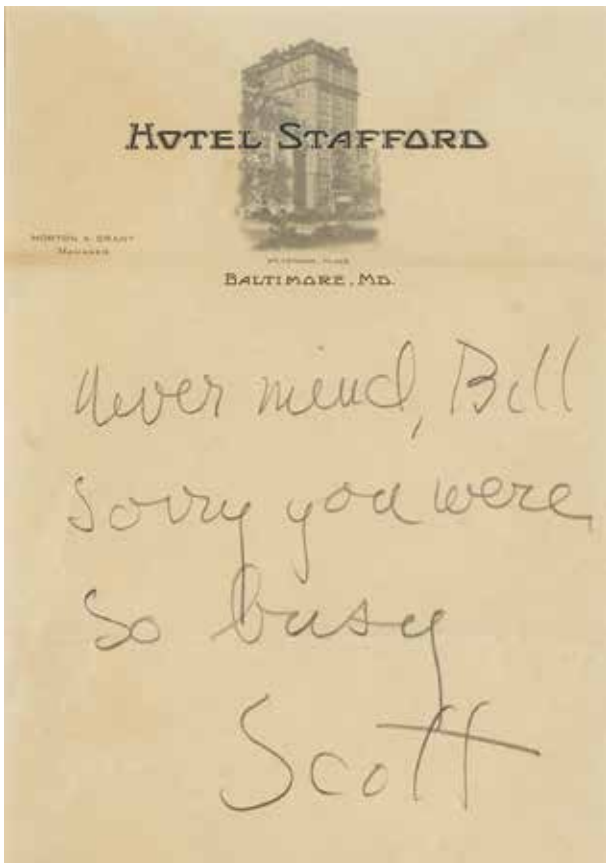 HOTEL STAFFORD
MORTON A. GRANT
MANAGER
BALTIMORE, MD.
Never mind, Bill
Sorry you were
so busy
Scott